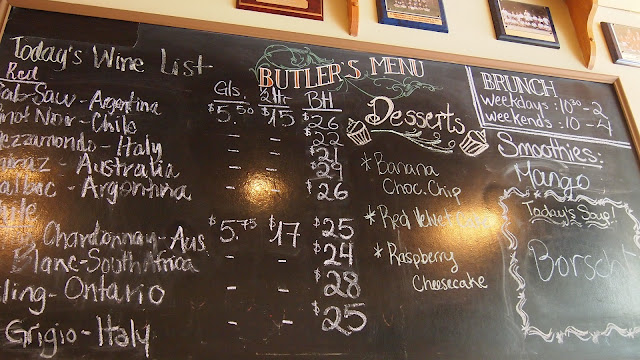 Today's Wine List
Red Gls. BH
Cab-Sauv - Argentina $5.50 $15 $26
Pinot Noir - Chile - - $22
Mezzamondo - Italy - - $21
Shiraz - Australia - - $24
Malbac - Argentina - - $26
Chardonnay - Aus. $5.75 $17 $25
Blanc - South Africa - - $24
ling - Ontario - - $28
Grigio - Italy - - $25
BUTLER'S MENU
Desserts
* Banana
Choc. Chip
* Red Velvet
* Raspberry
Cheesecake
BRUNCH
weekdays : 10:30 - 2
weekends : 10 - 4
Smoothies:
Mango
Today's Soup!
Borscht